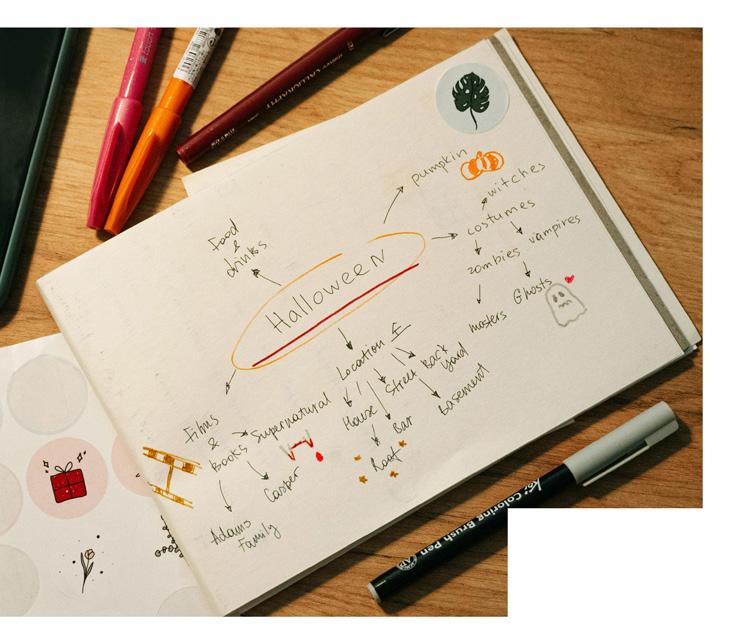 pumpkin
witches
costumes
vampires
zombies
Ghosts
masters
Food
&
drinks
Halloween
Location
Back
yard
Street
House
Bar
Basement
Roof
Films
&
Books
Supernatural
Casper
Adams
Family
Koi Coloring Brush Pen